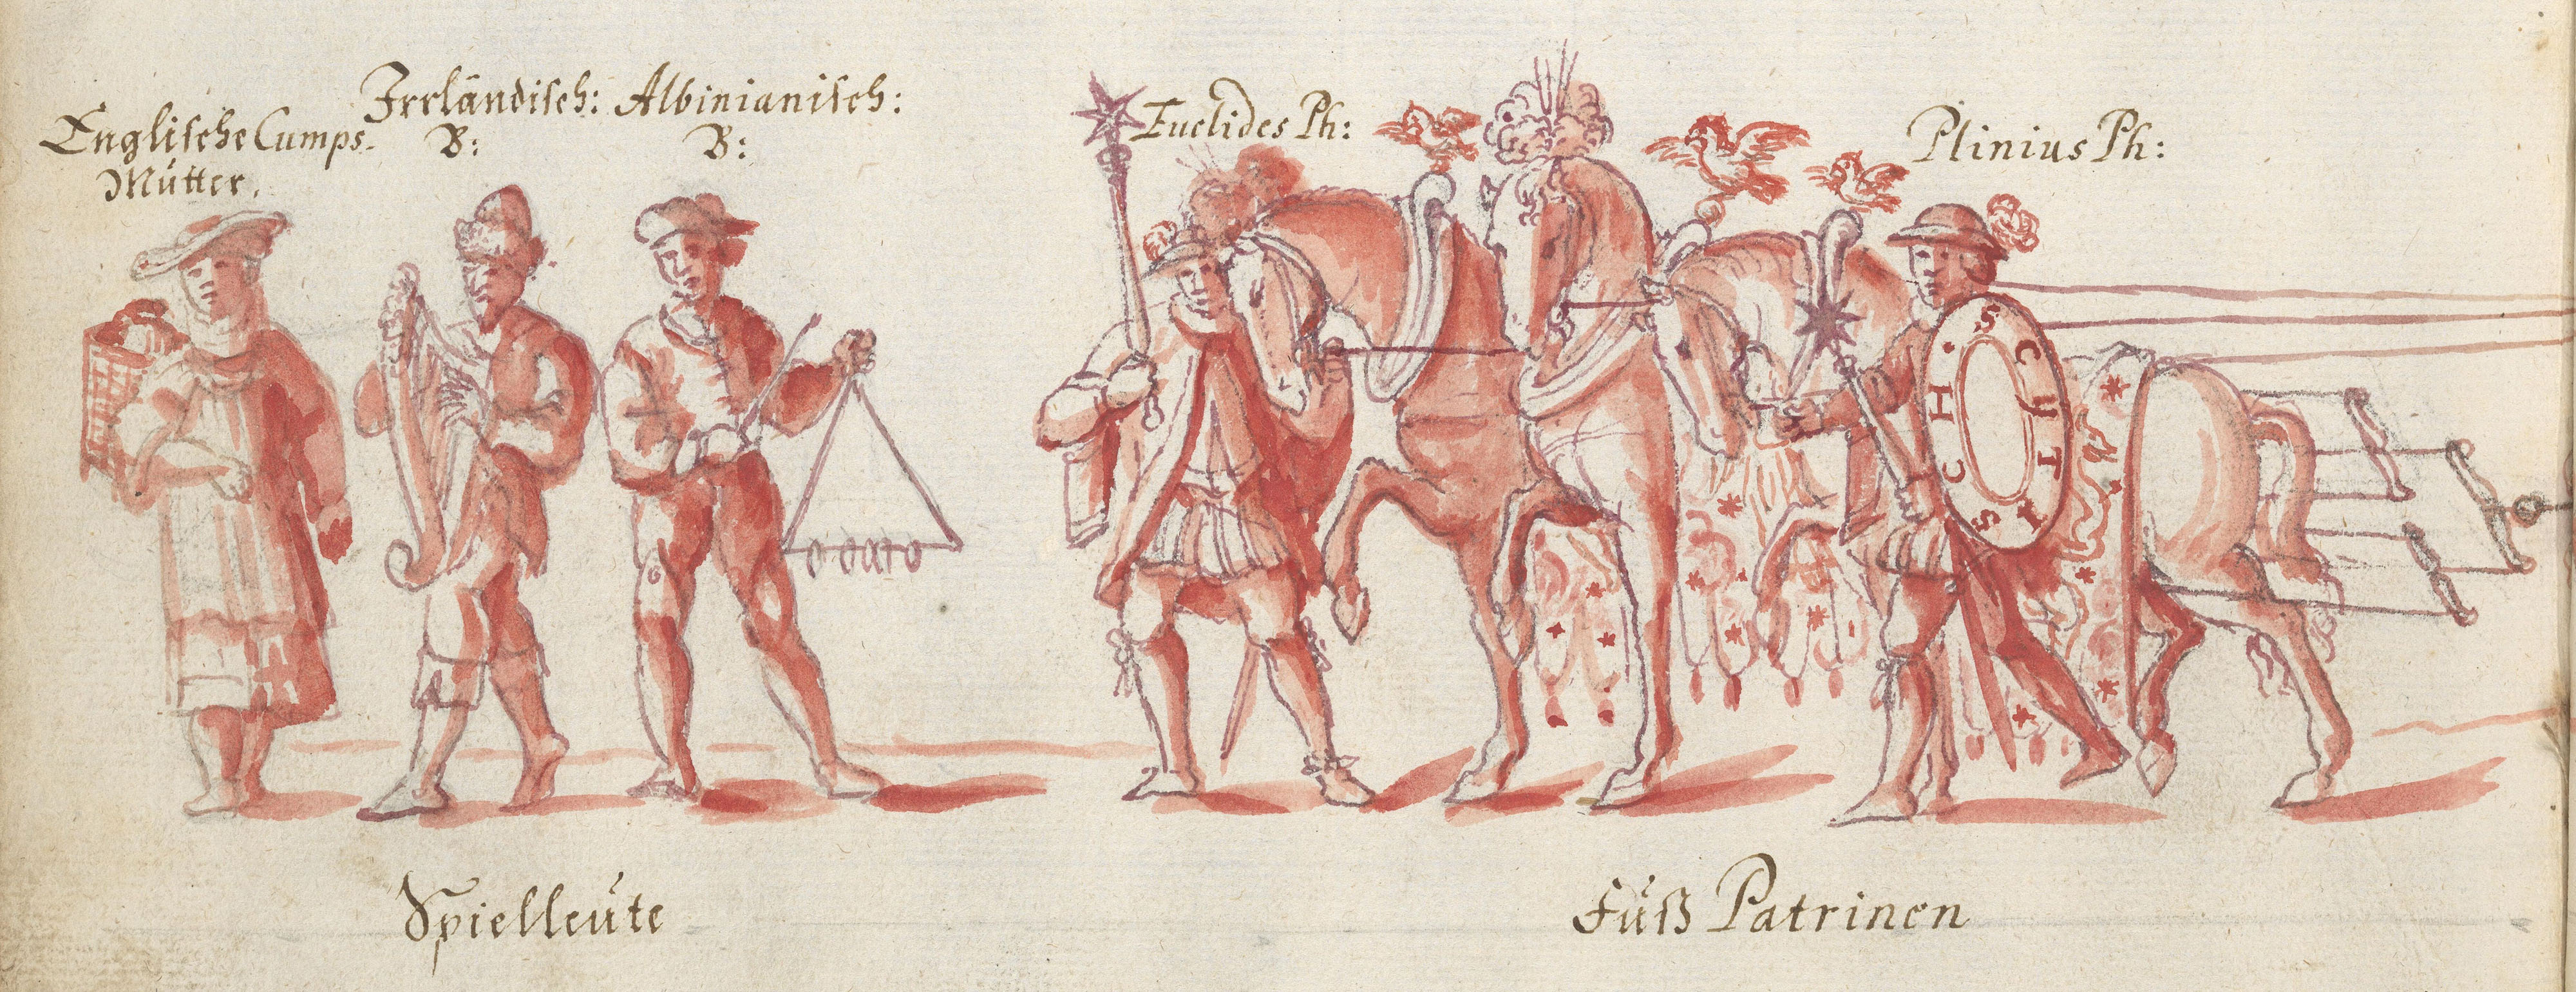 Englische Cumps-
Mütter.
Irrländisch:
B:
Albinianisch:
B:
Euclides Ph:
Plinius Ph:
SCUTISCH.
Spielleüte
Füß Patrinen